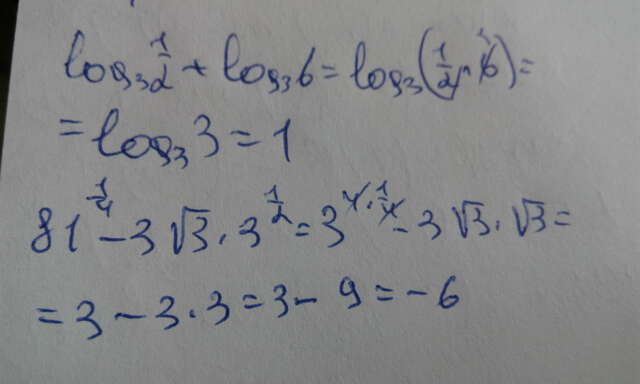 log₃ 1/2 + log₃ 6 = log₃(1/2 · 6) =
= log₃ 3 = 1
81^(1/4) - 3√3 · 3^(1/2) = 3^(4·1/4) - 3√3 · √3 =
= 3 - 3 · 3 = 3 - 9 = -6